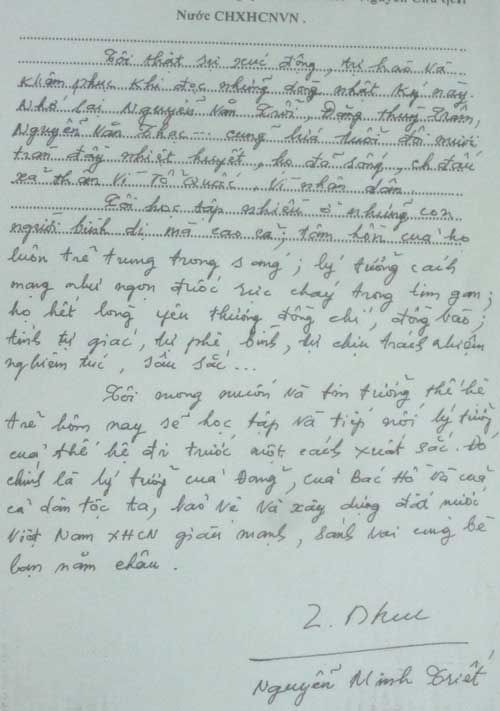 Nguyên Chủ tịch
Nước CHXHCNVN.
Tôi thật sự xúc động, tự hào và
Khâm phục khi đọc những dòng nhật ký này.
Nhớ lại Nguyễn Văn Trỗi, Đặng Thuỳ Trâm,
Nguyễn Văn Thạc... cùng lứa tuổi đôi mươi
tràn đầy nhiệt huyết, họ đã sống, ch. đấu
xả thân vì Tổ Quốc, vì nhân dân.
Tôi học tập nhiều ở những con
người bình dị mà cao cả, tâm hồn của họ
luôn trẻ trung trong sáng; lý tưởng cách
mạng như ngọn đuốc rực cháy trong tim gan;
họ hết lòng yêu thương đồng chí, đồng bào;
tính tự giác, tự phê bình, tự chịu trách nhiệm
nghiêm túc, sâu sắc...
Tôi mong muốn và tin tưởng thế hệ
trẻ hôm nay sẽ học tập và tiếp nối lý tưởng
của thế hệ đi trước một cách xuất sắc. Đó
chính là lý tưởng của Đảng, của Bác Hồ và của
cả dân tộc ta, bảo vệ và xây dựng đất nước
Việt Nam XHCN giàu mạnh, sánh vai cùng bè
bạn năm châu.
Nguyễn Minh Triết